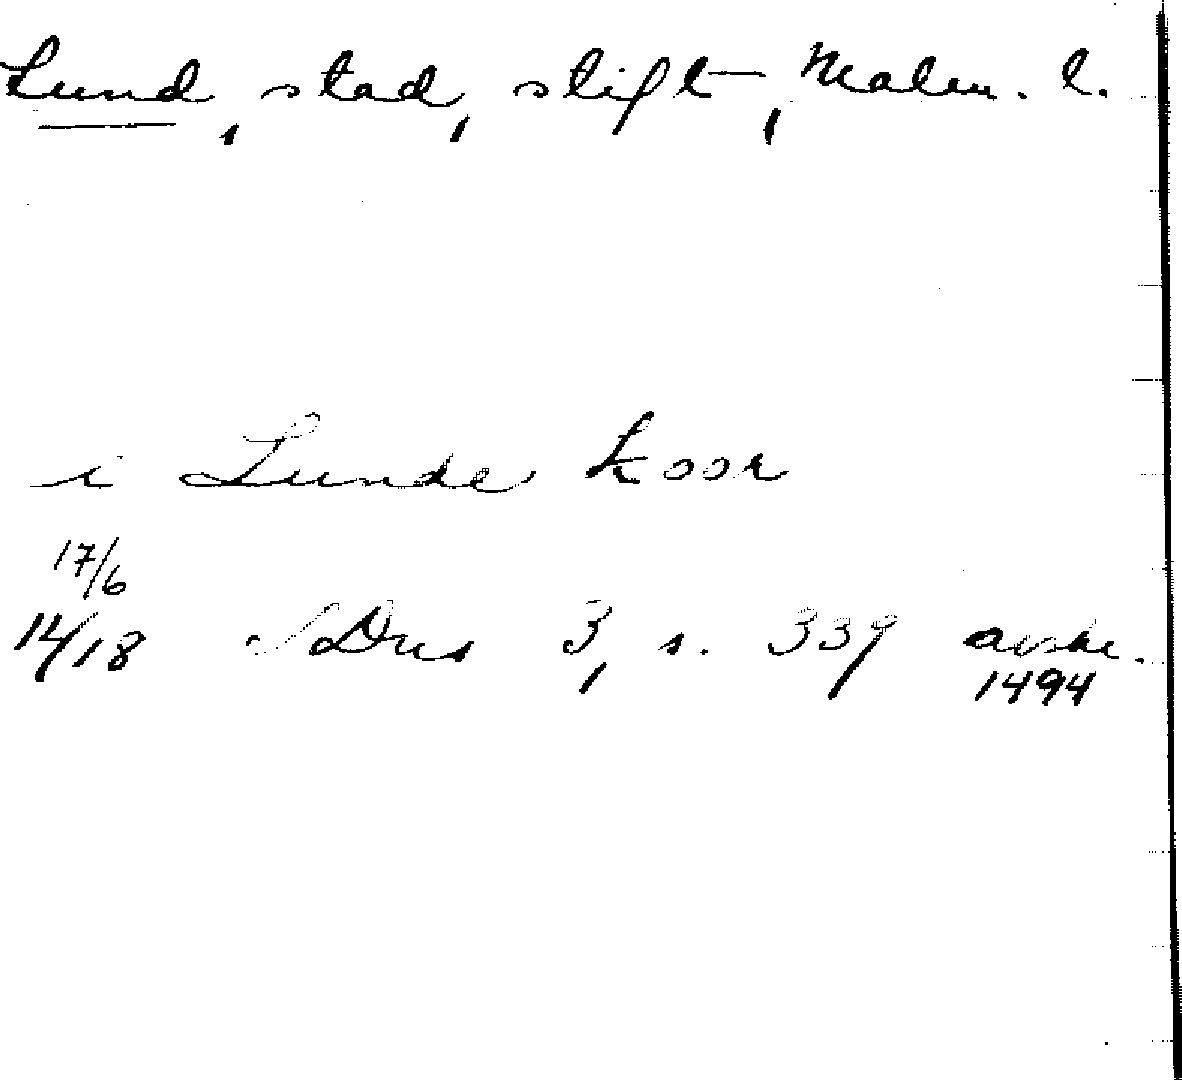 Lund, stad, stift, Malm. l.
i Lunde koor
17/6
14/18 SDns 3, s. 339 avskr.
1494